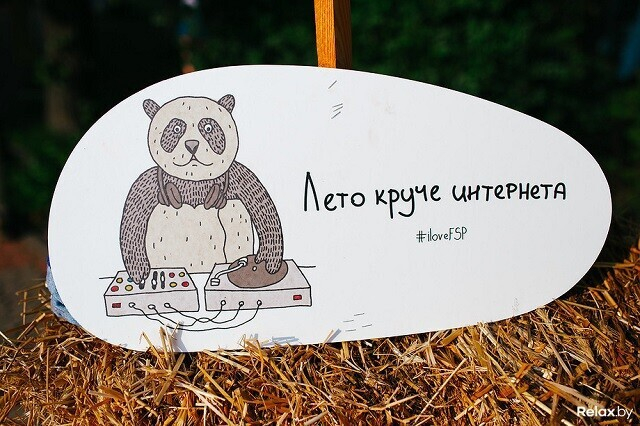 Лето круче интернета
#iloveFSP
Relax.by